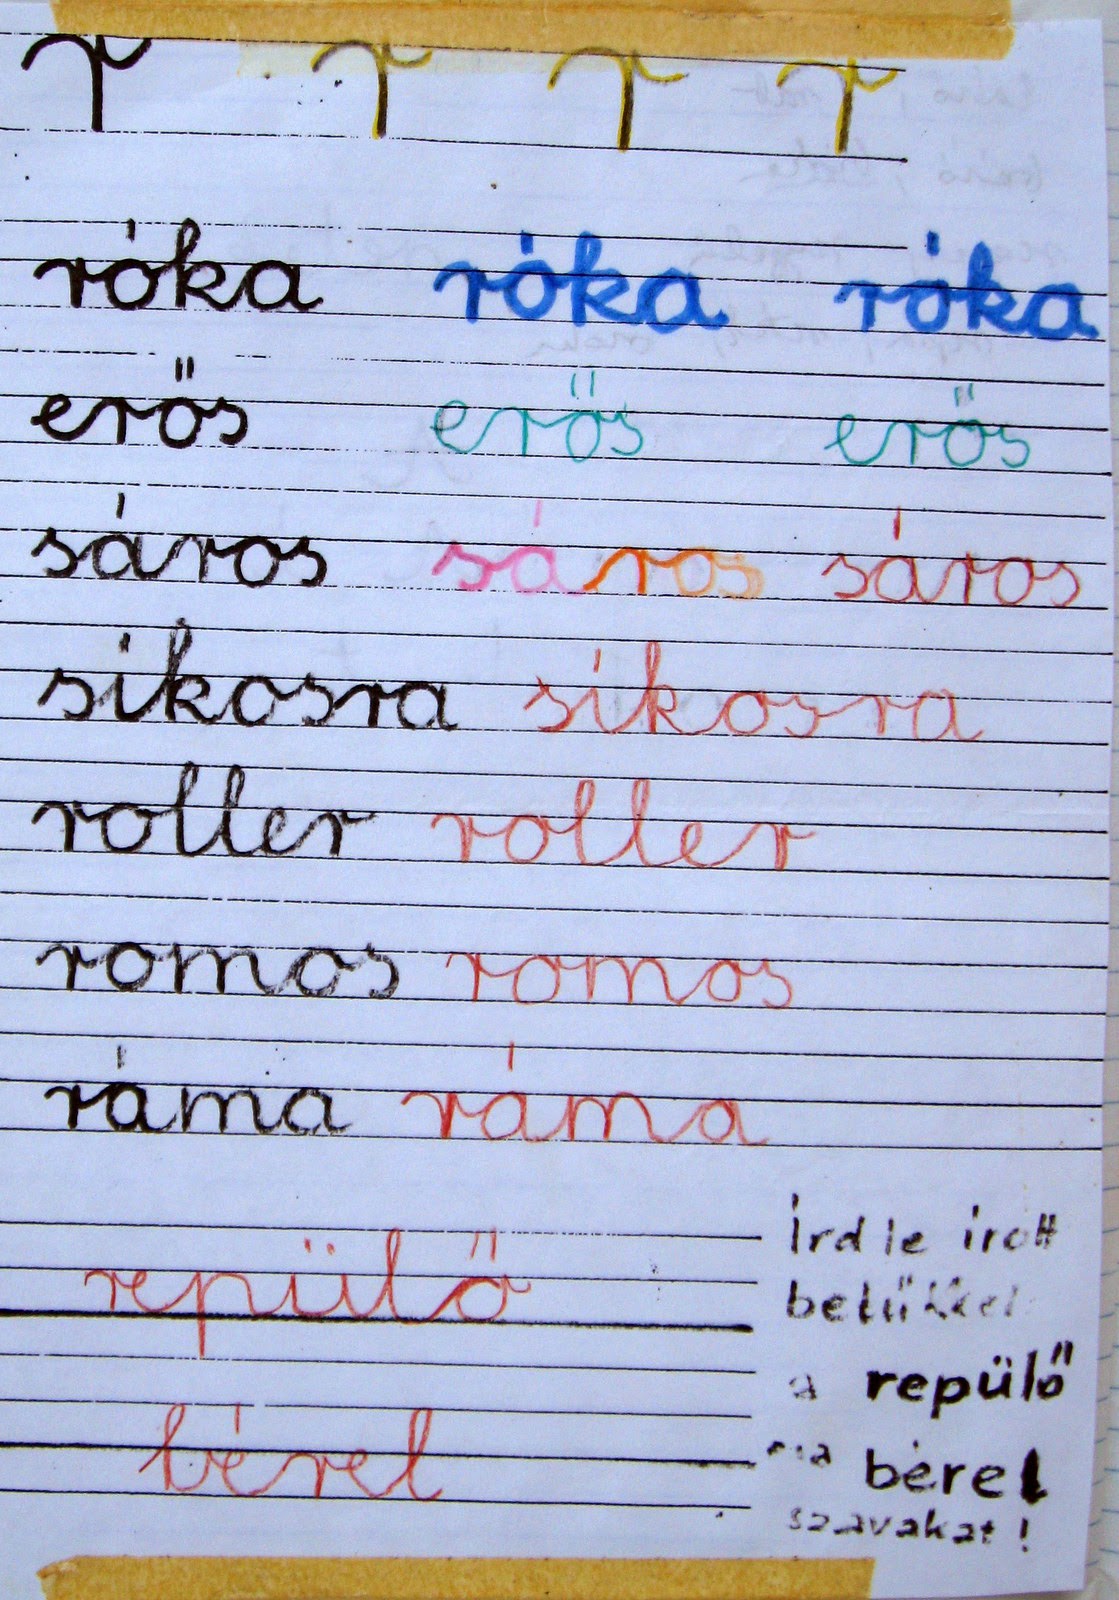 r r r r
róka róka róka
erős erős erős
sáros sáros sáros
sikosra sikosra
roller roller
romos romos
ráma ráma
repülő
bérel
Írd le írott
betűkkel
a repülő
bérel
szavakat!